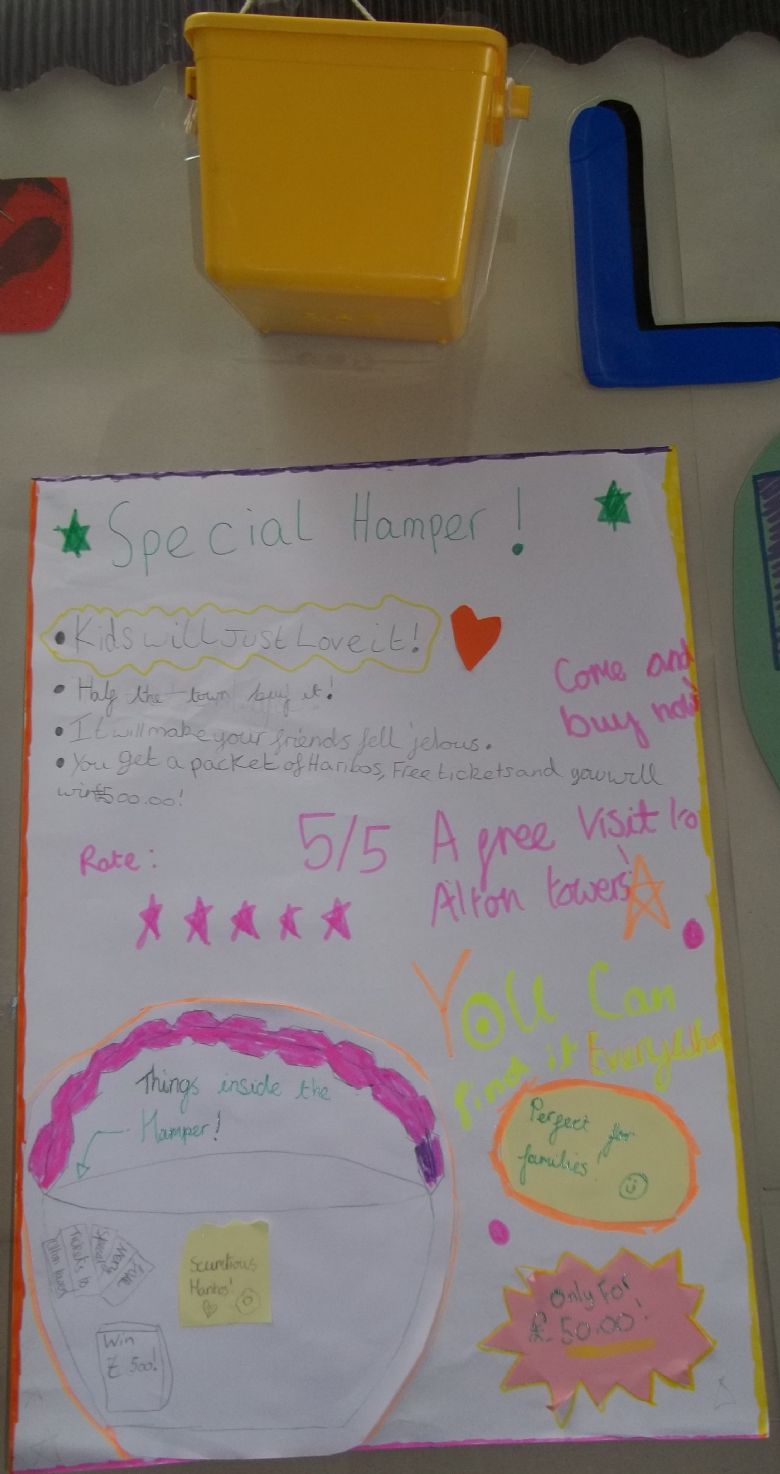 L
Special Hamper!
• Kids will Just Love it!
• Half the town buy it!
• It will make your friends fell jelous.
• You get a packet of Haribos, Free tickets and you will
win £500.00!
Come and
buy now
Rate: 5/5
A free visit to
Alton towers
You Can
find it Everywhere
Things inside the
Hamper!
Perfect for
families!
Tickets to
Alton towers
Scrumtious
Haribos!
Win
£500!
Only For
£50.00!